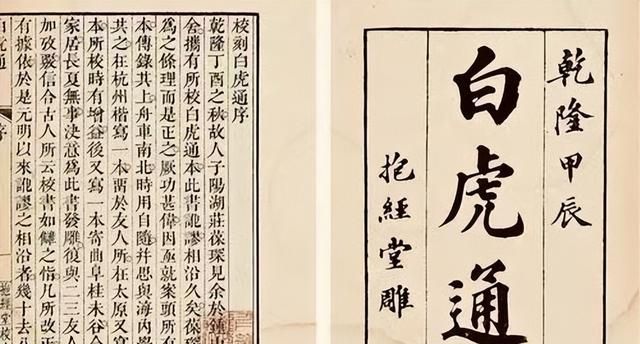 乾隆甲辰
白虎通
抱經堂雕
校刻白虎通序
乾隆丁酉之秋故人子陽湖莊葆琛見余於鍾山
舍攜有所校白虎通本此書訛謬相沿久矣葆琛
爲之條理而是正之厥功甚偉因亟就案頭所有
本傳錄其上舟車南北時用自隨并思與海內學
共之在杭州楷寫一本畱於友人所在太原又寫
本所校時有增益後又寫一本寄曲阜桂未谷今
家居長夏無事決意爲此書發雕復與二三友人
加攷覈信合古人所云校書如讎之恉凡所改正
有據依於是元明以來訛謬之相沿者幾十去八
白虎通
序
抱經堂校